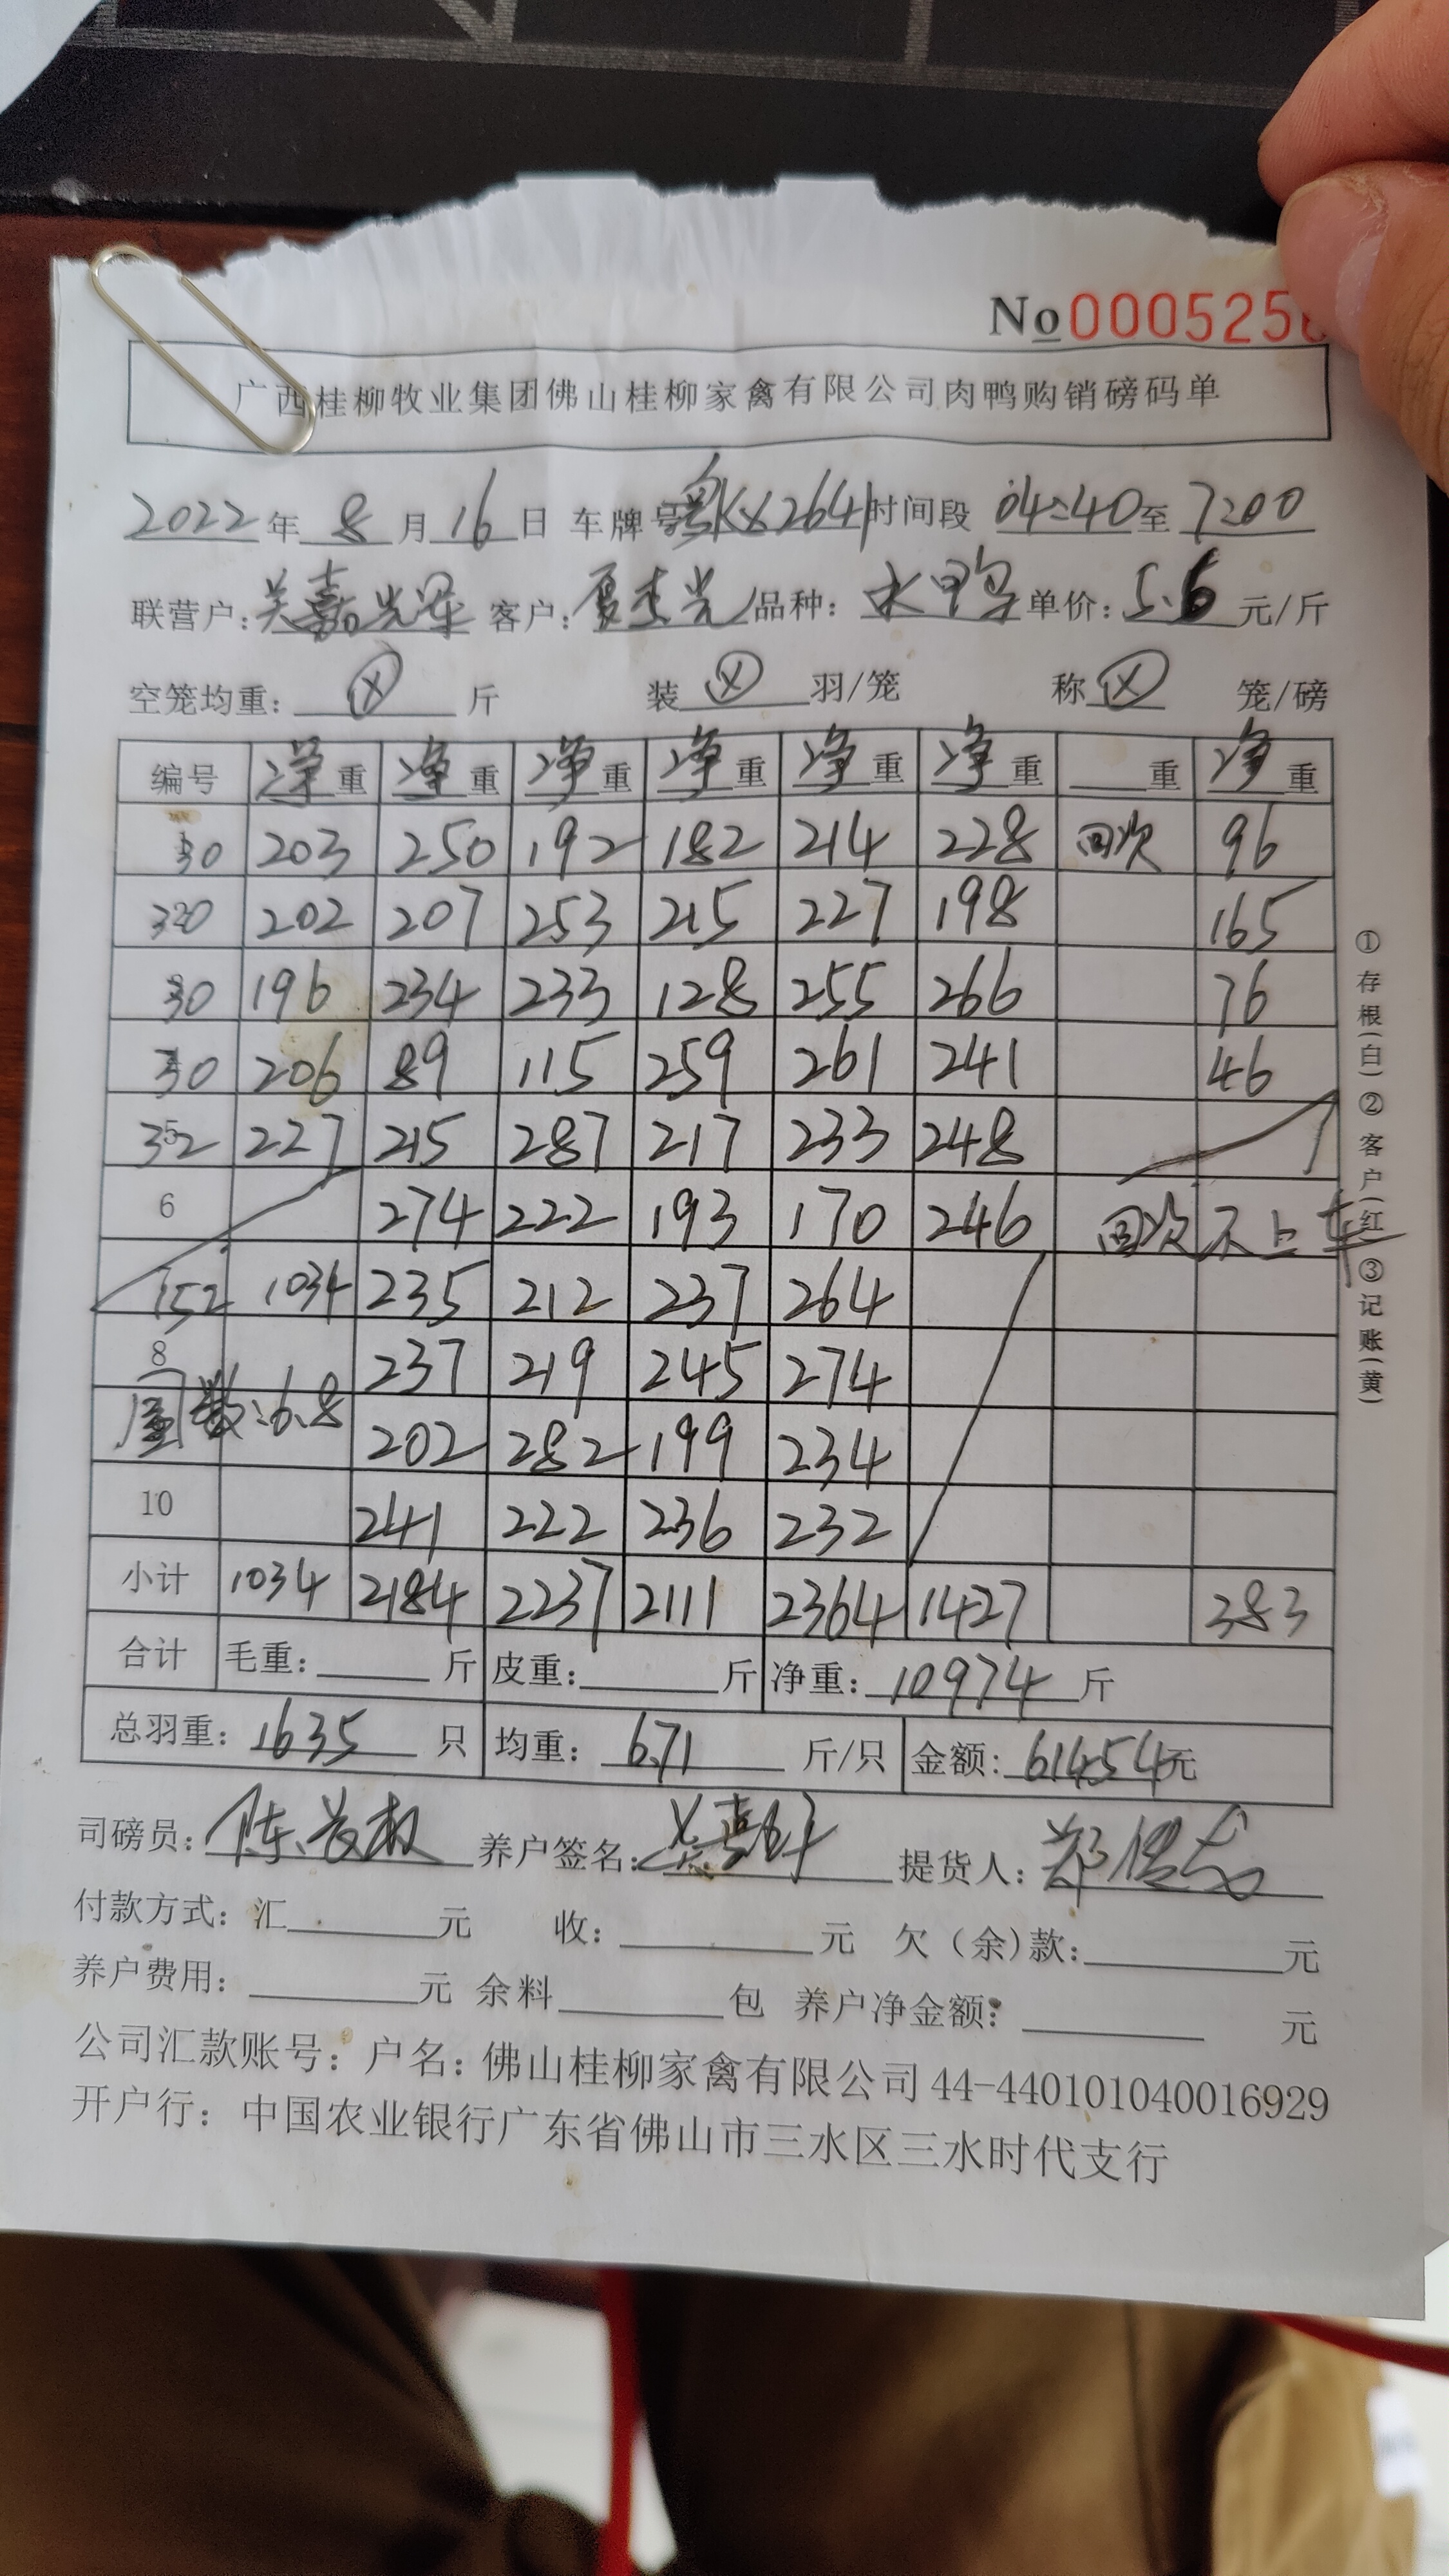 No 000525
广西桂柳牧业集团佛山桂柳家禽有限公司肉鸭购销磅码单
2022年 8月16日 车牌号粤KX2641时间段 04:40至 7:00
联营户: 客户: 品种: 水鸭 单价: 5.6 元/斤
空笼均重: X 斤 装 X 羽/笼 称 X 笼/磅
编号 净重 净重 净重 净重 净重 净重 重 净重
30 203 250 192 182 214 228 回次 96
30 202 207 253 215 227 198 165
30 196 234 233 128 255 266 76
30 206 89 115 259 261 241 46
32 227 215 287 217 233 248
6 274 222 193 170 246 回次不上车
152 1034 235 212 237 264
8 237 219 245 274
数:6.8 202 282 199 234
10 241 222 236 232
小计 1034 2184 2237 2111 2364 1427 383
合计 毛重: 斤 皮重: 斤 净重: 10974 斤
总羽重: 1635 只 均重: 6.71 斤/只 金额: 61454元
司磅员: 陈 养户签名: 提货人: 郑
付款方式: 汇 元 收: 元 欠(余)款: 元
养户费用: 元 余料 包 养户净金额: 元
公司汇款账号: 户名: 佛山桂柳家禽有限公司 44-440101040016929
开户行: 中国农业银行广东省佛山市三水区三水时代支行
①存根(白)②客户(红)③记账(黄)